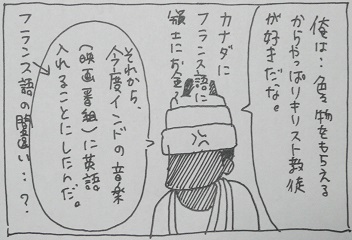 俺は…色々物をもらえる
からやっぱりキリスト教徒
が好きだな。
カナダに
フランス語に
領土にお金〜
それから、
今度インドの音楽
(映画番組)に英語
入れることにしたんだ。
フランス語の間違い…?